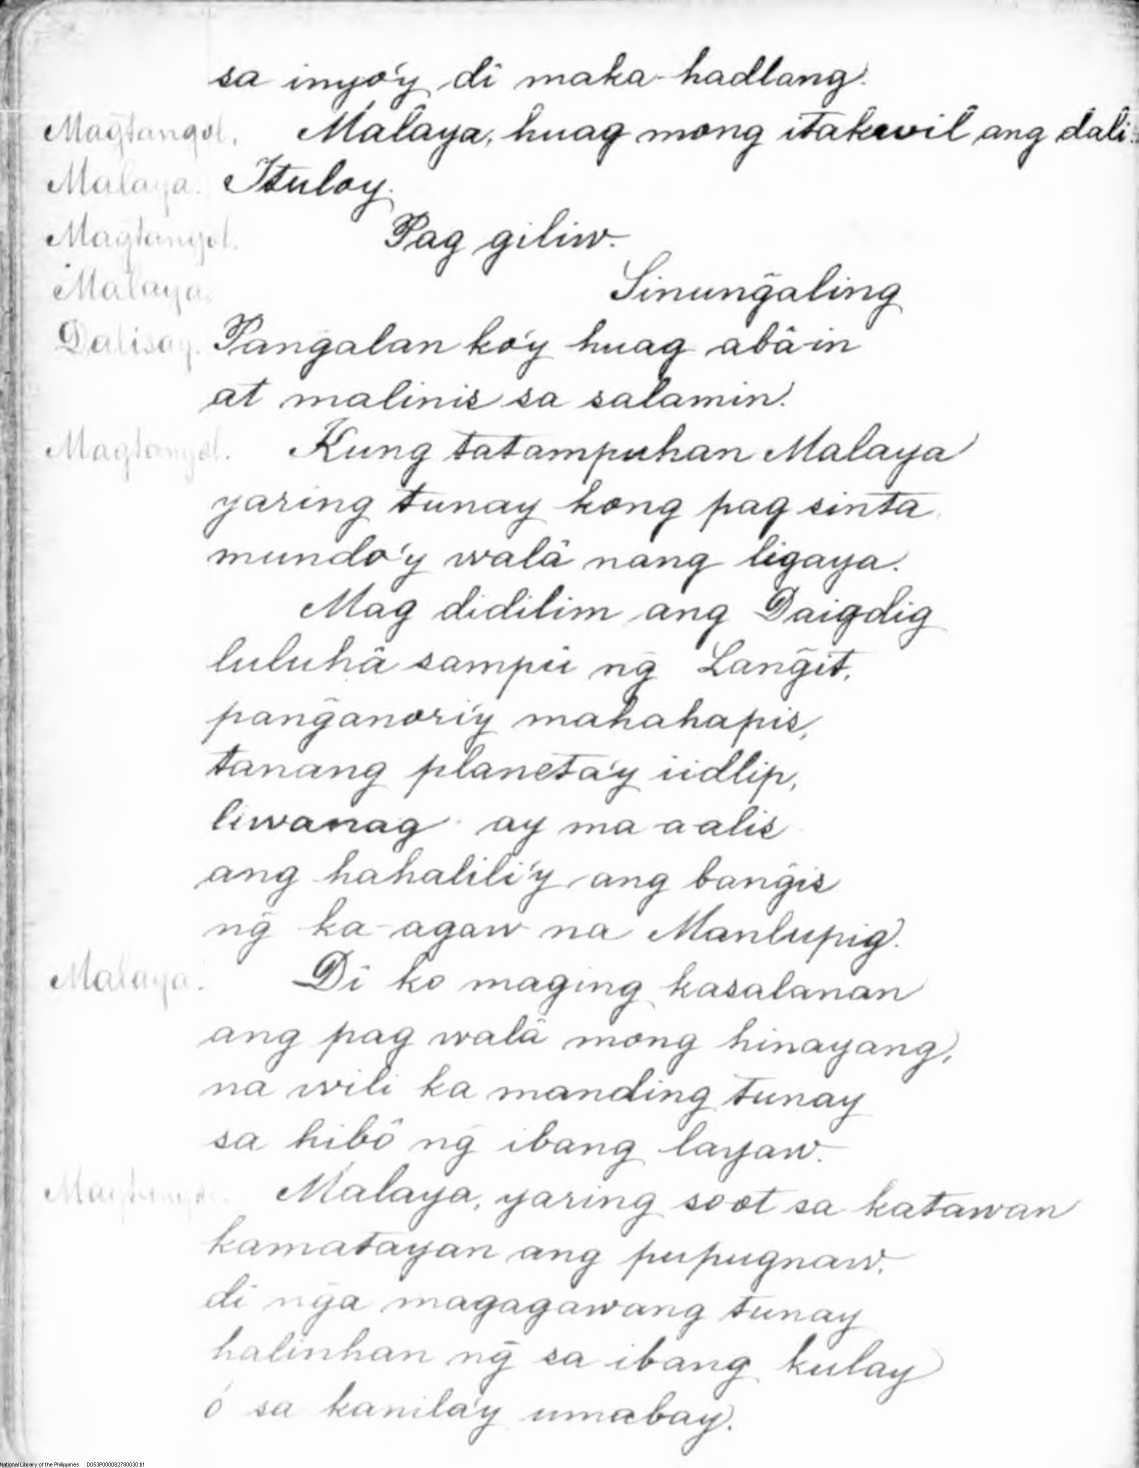 sa inyo'y di maka-hadlang.
Magtangol. Malaya, huag mong itakwil ang dali..
Malaya. Ituloy.
Magtangol. Pag giliw.
Malaya. Sinung̃aling
Dalisay. Pang̃alan ko'y huag abâ-in
at malinis sa salamin.
Magtangol. Kung tatampuhan Malaya
yaring tunay kong pag sinta
mundo'y walâ nang ligaya.
Mag didilim ang Daigdig
luluhâ sampû ng̃ Lang̃it,
pang̃anori'y mahahapis,
tanang planeta'y iidlip,
liwanag ay ma-a-alis
ang hahalili'y ang bang̃is
ng̃ ka-agaw na Manlupig.
Malaya. Di ko maging kasalanan
ang pag walâ mong hinayang,
na wili ka manding tunay
sa hibô ng̃ ibang layaw.
Magtangol. Malaya, yaring soot sa katawan
kamatayan ang pupugnaw.
di ng̃a magagawang tunay
halinhan ng̃ sa ibang kulay
ó sa kanila'y umabay.
National Library of the Philippines